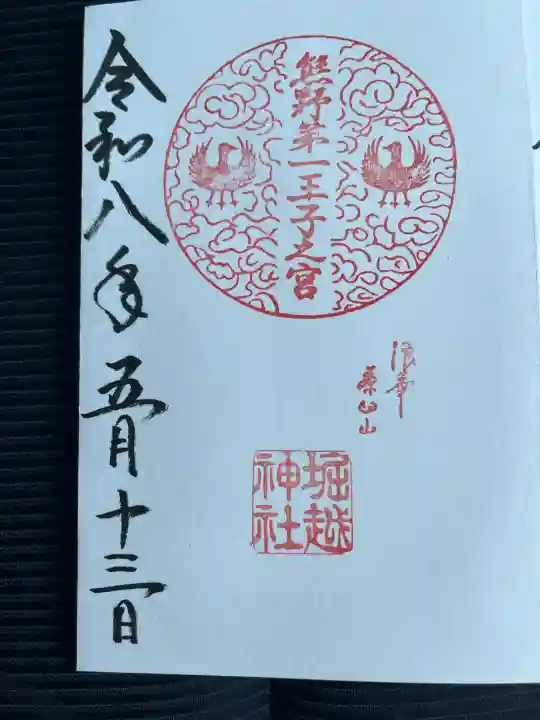 熊野第一王子之宮
浪華
茶臼山
堀越
神社
令和八年五月十三日